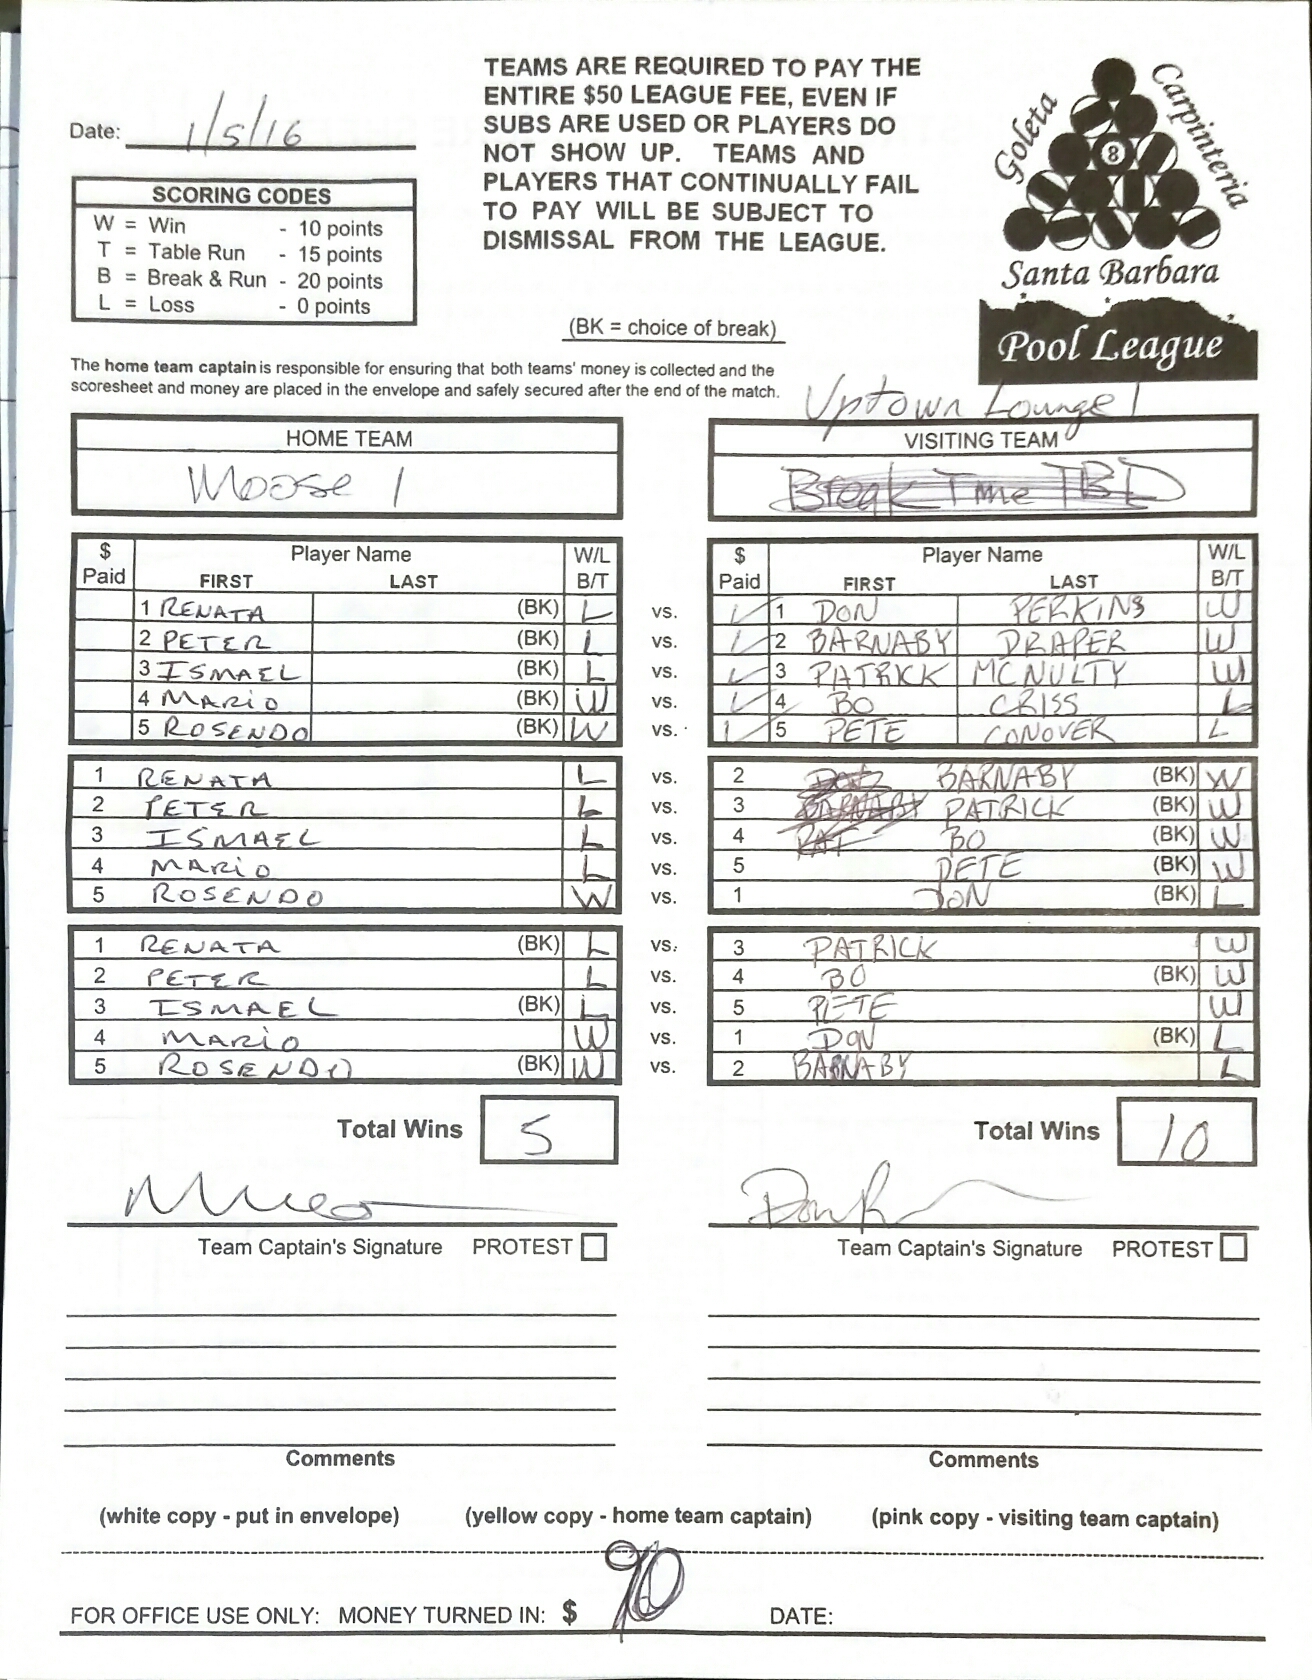 TEAMS ARE REQUIRED TO PAY THE
ENTIRE $50 LEAGUE FEE, EVEN IF
SUBS ARE USED OR PLAYERS DO
NOT SHOW UP. TEAMS AND
PLAYERS THAT CONTINUALLY FAIL
TO PAY WILL BE SUBJECT TO
DISMISSAL FROM THE LEAGUE.
Goleta Carpinteria
8
Santa Barbara
Pool League
Date: 1/5/16
SCORING CODES
W = Win - 10 points
T = Table Run - 15 points
B = Break & Run - 20 points
L = Loss - 0 points
(BK = choice of break)
The home team captain is responsible for ensuring that both teams' money is collected and the
scoresheet and money are placed in the envelope and safely secured after the end of the match.
Uptown Lounge 1
HOME TEAM VISITING TEAM
Moose 1 Break Time TBD
$ Paid Player Name FIRST LAST W/L B/T $ Paid Player Name FIRST LAST W/L B/T
1 RENATA (BK) L vs. 1 DON PERKINS W
2 PETER (BK) L vs. 2 BARNABY DRAPER W
3 ISMAEL (BK) L vs. 3 PATRICK MCNULTY W
4 MARIO (BK) W vs. 4 BO CRISS L
5 ROSENDO (BK) W vs. 5 PETE CONOVER L
1 RENATA L vs. 2 BARNABY (BK) W
2 PETER L vs. 3 BARNABY PATRICK (BK) W
3 ISMAEL L vs. 4 PAT BO (BK) W
4 MARIO L vs. 5 PETE (BK) W
5 ROSENDO W vs. 1 DON (BK) L
1 RENATA (BK) L vs. 3 PATRICK W
2 PETER L vs. 4 BO (BK) W
3 ISMAEL (BK) L vs. 5 PETE W
4 MARIO W vs. 1 DON (BK) L
5 ROSENDO (BK) W vs. 2 BARNABY L
Total Wins 5 Total Wins 10
Team Captain's Signature PROTEST Team Captain's Signature PROTEST
Comments Comments
(white copy - put in envelope) (yellow copy - home team captain) (pink copy - visiting team captain)
FOR OFFICE USE ONLY: MONEY TURNED IN: $ 90 DATE: